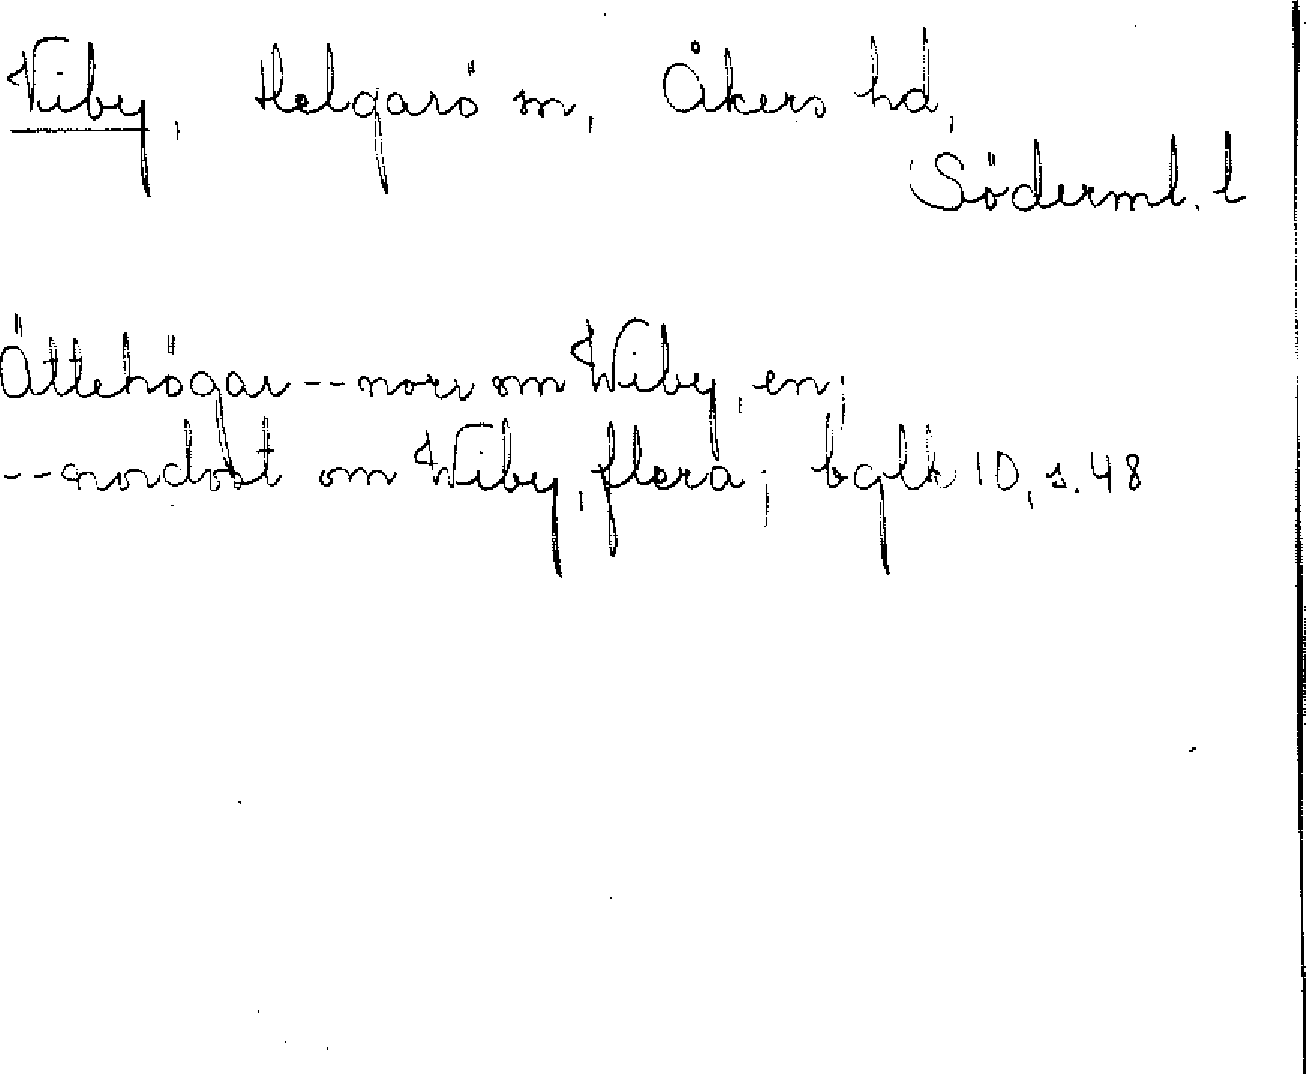 Viby, Helgarö sn, Åkers hd,
Söderml. l
Ättehögar -- norr om Wiby, en;
-- nordost om Wiby, flera; bglk 10, s. 48